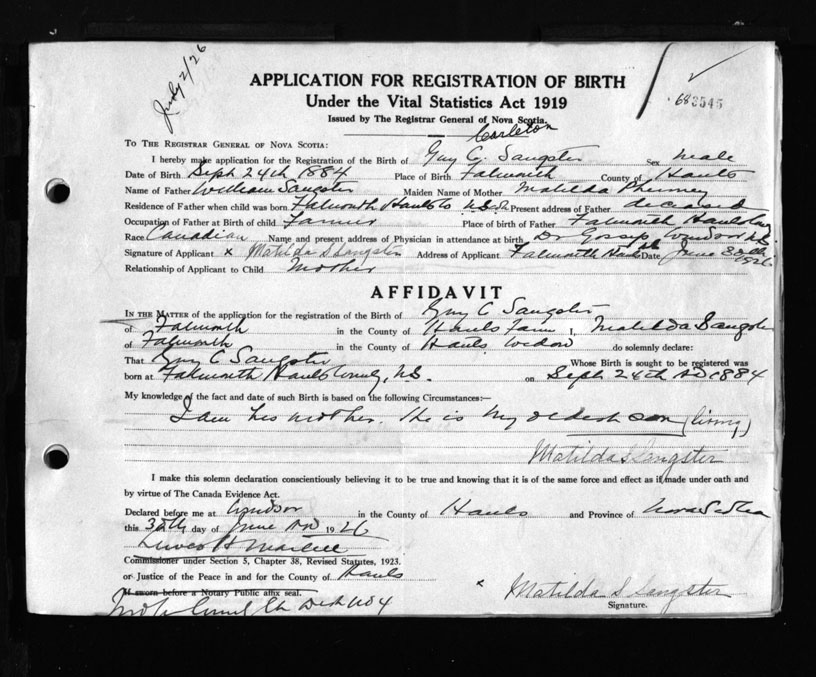 July 2/26
APPLICATION FOR REGISTRATION OF BIRTH
Under the Vital Statistics Act 1919
Issued by The Registrar General of Nova Scotia.
Carleton
TO THE REGISTRAR GENERAL OF NOVA SCOTIA:
I hereby make application for the Registration of the Birth of Guy C. Sangster Sex male
Date of Birth Sept 24th 1884 Place of Birth Falmouth County of Hants
Name of Father William Sangster Maiden Name of Mother Matilda
Residence of Father when child was born Falmouth Hants Co N.S. Present address of Father deceased
Occupation of Father at Birth of child Farmer Place of birth of Father Falmouth Hants Co
Race Canadian Name and present address of Physician in attendance at birth Dr Gossip Windsor N.S.
Signature of Applicant x Matilda S Sangster Address of Applicant Falmouth Hants Date June 30th 1926
Relationship of Applicant to Child Mother
AFFIDAVIT
IN THE MATTER of the application for the registration of the Birth of Guy C Sangster
of Falmouth in the County of Hants I, Matilda Sangster
of Falmouth in the County of Hants Widow do solemnly declare:
That Guy C Sangster Whose Birth is sought to be registered was
born at Falmouth Hants County, N.S. on Sept 24th AD 1884
My knowledge of the fact and date of such Birth is based on the following Circumstances:—
I am his mother. He is my oldest son (living)
Matilda S Sangster
I make this solemn declaration conscientiously believing it to be true and knowing that it is of the same force and effect as if made under oath and
by virtue of The Canada Evidence Act.
Declared before me at Windsor in the County of Hants and Province of Nova Scotia
this 30th day of June AD 1926
Commissioner under Section 5, Chapter 38, Revised Statutes, 1923.
or Justice of the Peace in and for the County of Hants
If sworn before a Notary Public affix seal.
x Matilda S Sangster
Signature.